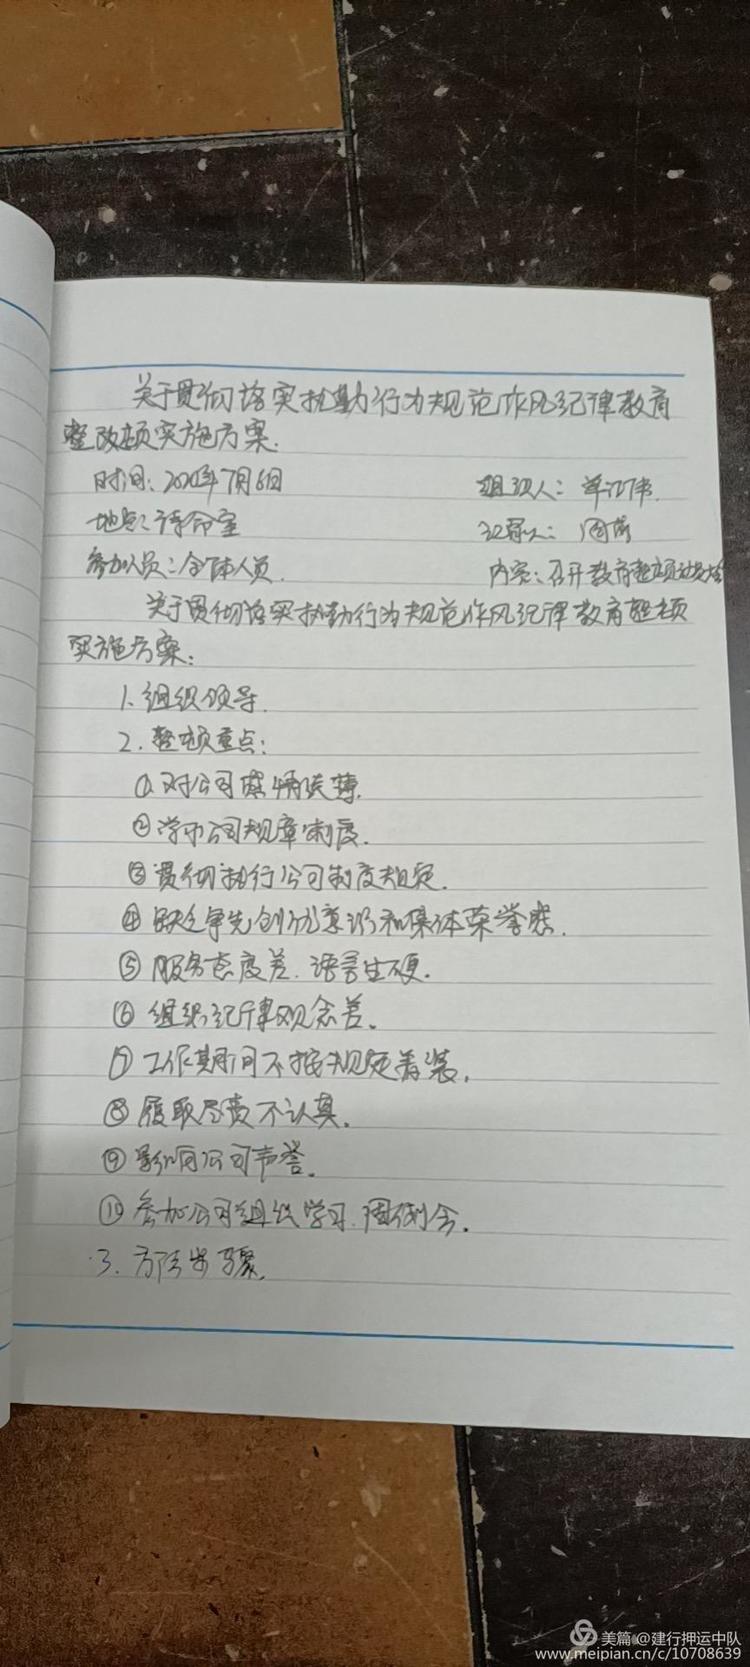 关于贯彻落实执勤行为规范作风纪律教育
整改顿实施方案.
时间：2020年7月6日 组织人：单
地点：待命室 记录人：周
参加人员：全体人员. 内容：召开教育整顿
关于贯彻落实执勤行为规范作风纪律教育整顿
实施方案：
1.组织领导.
2.整顿重点：
①对公司感情淡薄.
②学习公司规章制度.
③贯彻执行公司制度规定.
④缺乏争先创优意识和集体荣誉感.
⑤服务态度差.语言生硬.
⑥组织纪律观念差.
⑦工作期间不按规定着装.
⑧履职尽责不认真.
⑨影响公司声誉.
⑩参加公司组织学习.周例会.
3.方法步骤.
美篇 @建行押运中队
www.meipian.cn/c/10708639